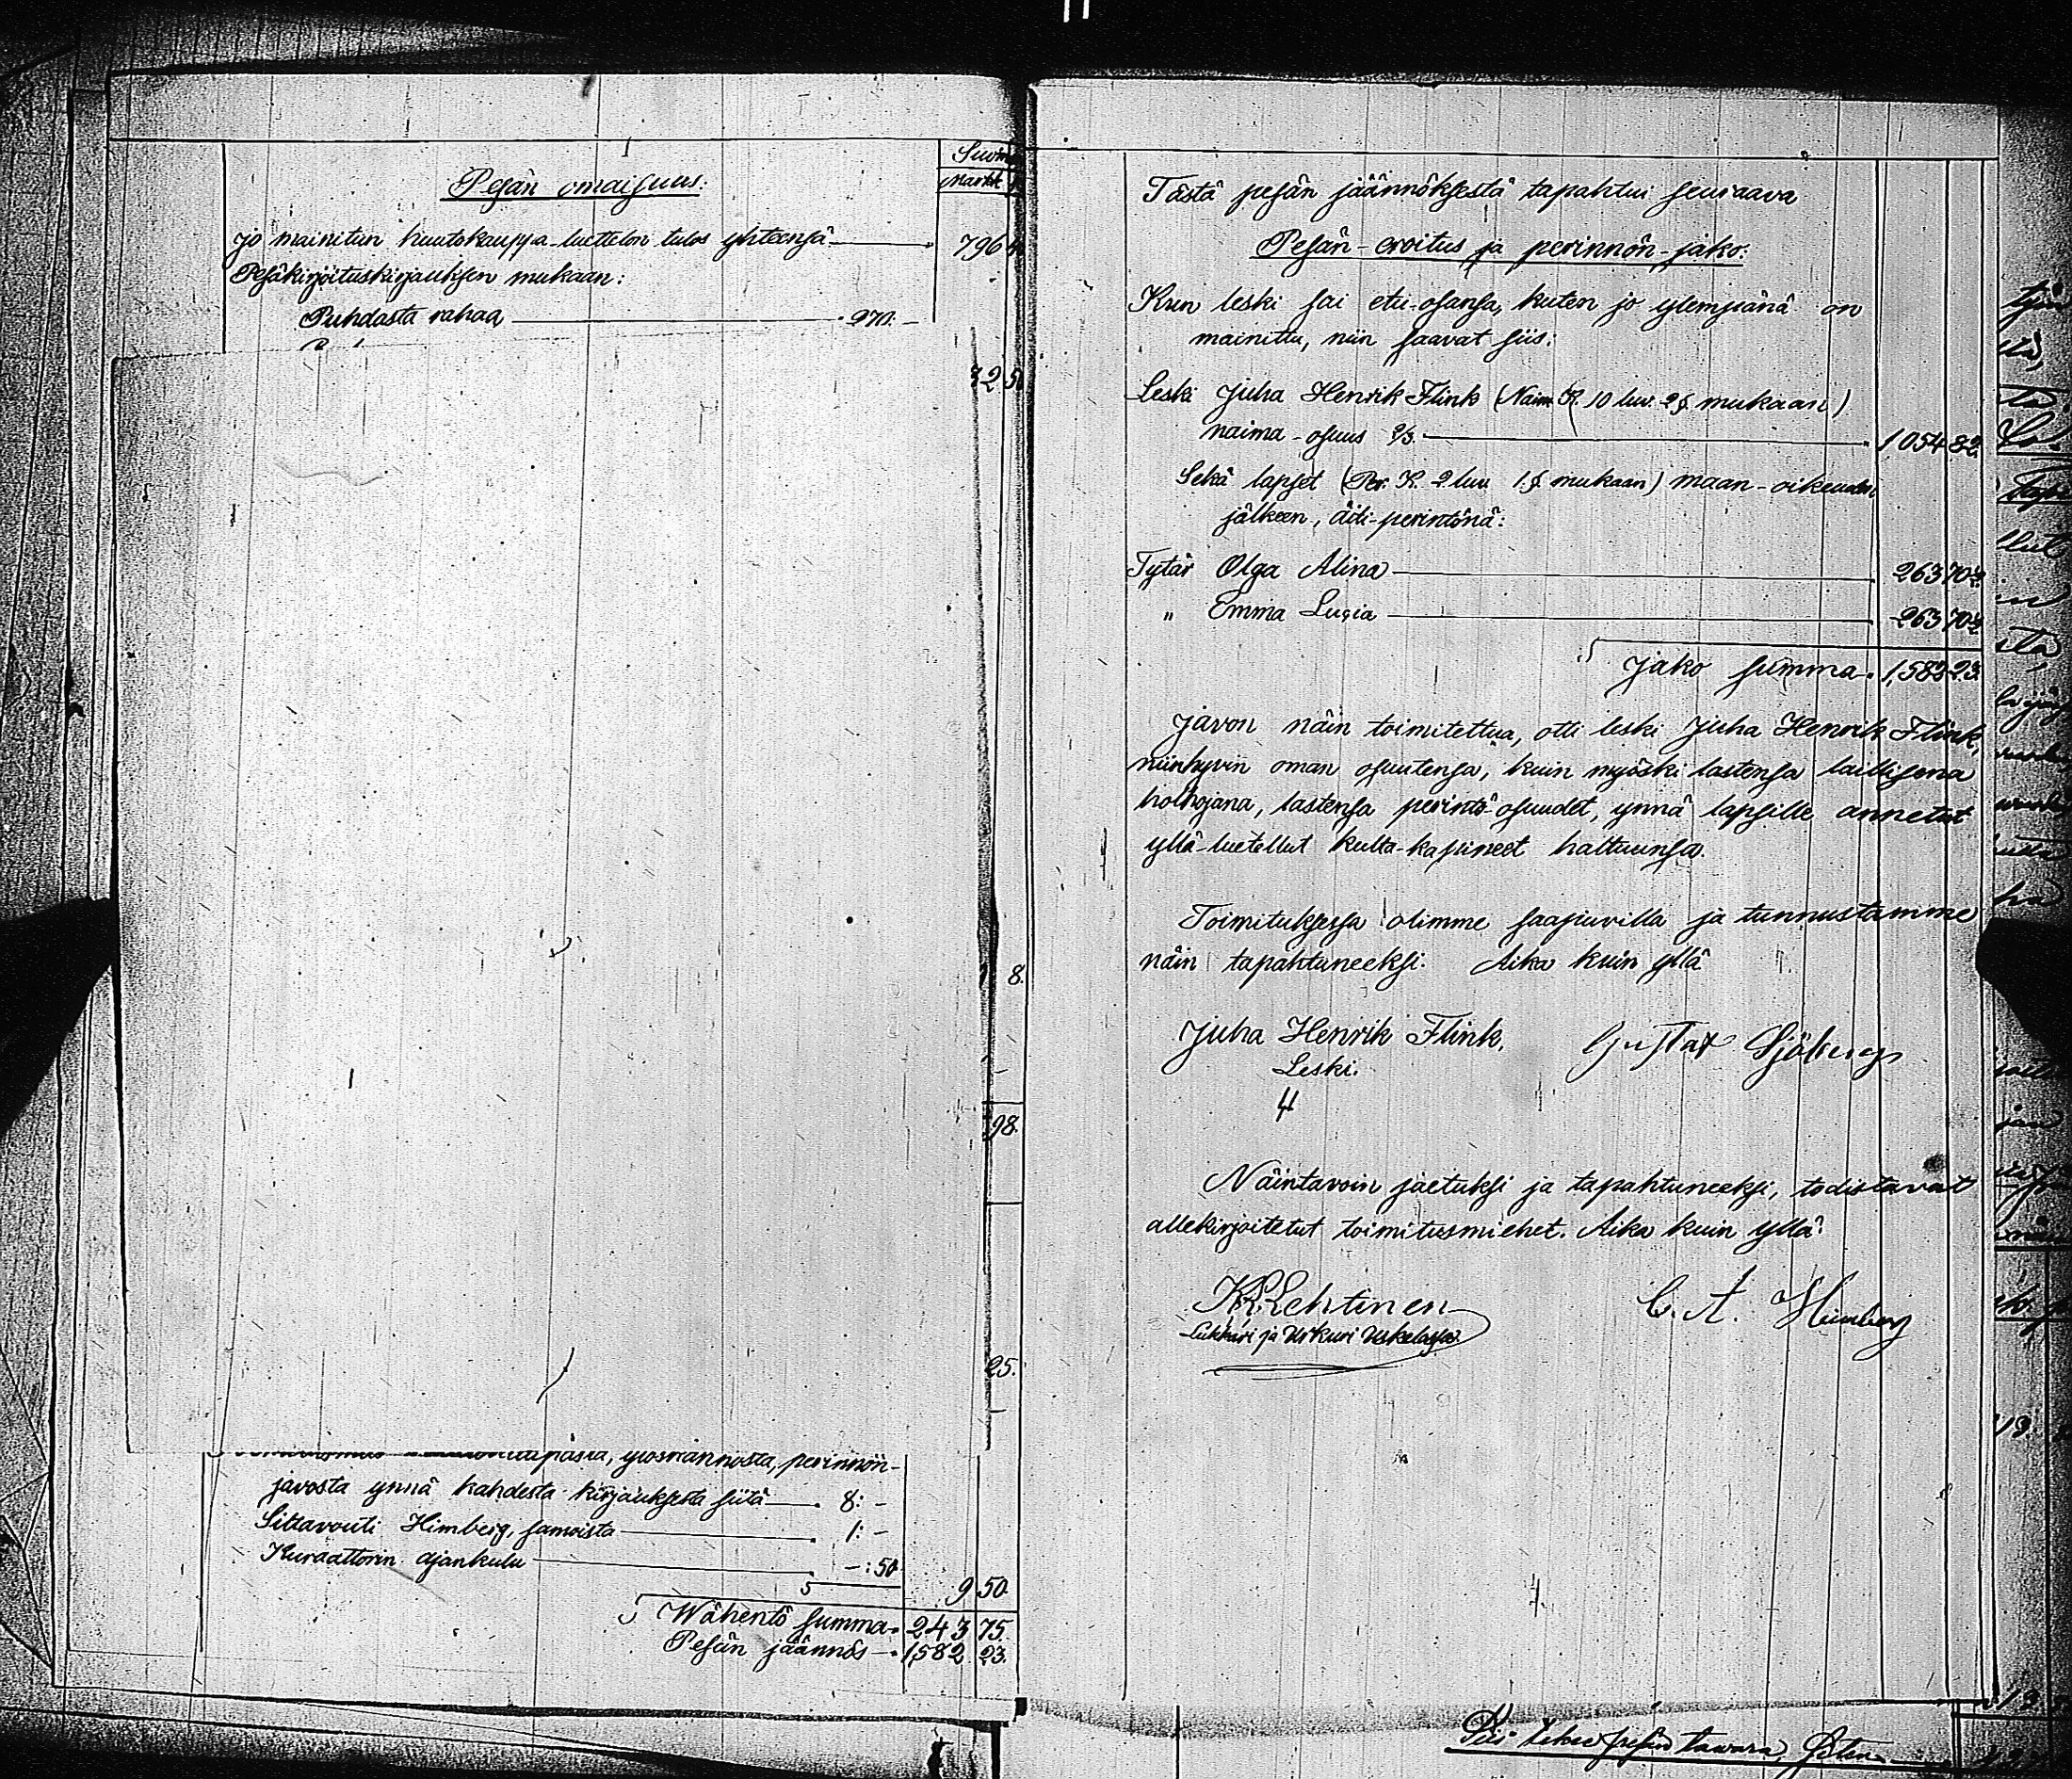 Pesän omaisuus:
Suom
Markk
jo mainitun huutokauppa-luettelon tulos yhteensä 796
Pesäkirjoituskirjauksen mukaan:
Puhdasta rahaa 270. –
72 5
8.
98.
25.
perinnön-
javosta ynnä kahdesta kirjauksesta siitä 8: –
Siltavouti Himberg, samoista 1: –
Kuraattorin ajankulu – : 50.
9 50
Wähentö summa 243 75.
Pesän jäännös 1,582 23.
Tästä pesän jäännöksestä tapahtui seuraava
Pesän-eroitus ja perinnön-jako:
Kun leski sai etu-osansa, kuten jo ylempänä on
mainittu, niin saavat siis:
Leski Juha Henrik Flink (Naim. K. 10 luv. 2 § mukaan)
naima-osuus 2/3. 1,054 82
Sekä lapset (Per. K. 2 luv. 1. § mukaan) maan-oikeuden
jälkeen, äiti-perintönä:
Tytär Olga Alina 263 70½
" Emma Lusia 263 70½
Jako summa 1,582 23.
Javon näin toimitettua, otti leski Juha Henrik Flink,
niinhyvin oman osuutensa, kuin myöski lastensa laillisena
holhojana, lastensa perintö-osuudet, ynnä lapsille annetut
yllä-luetellut kulta-kapineet haltuunsa.
Toimituksessa olimme saapuvilla ja tunnustamme
näin tapahtuneeksi. Aika kuin yllä
Juha Henrik Flink, Gustaf Sjöberg
Leski.
Näintavoin jaetuksi ja tapahtuneeksi, todistavat
allekirjoitetut toimitusmiehet. Aika kuin yllä:
K. R. Lehtinen C. A. Himberg
Lukkari ja Urkuri Uskelassa.